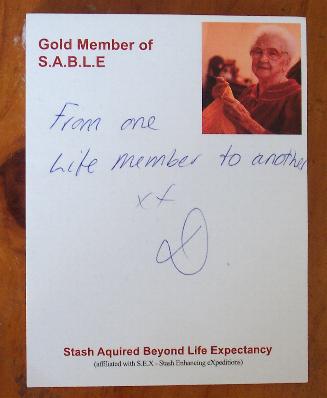 Gold Member of
S.A.B.L.E
From one
Life member to another
xx
D
Stash Aquired Beyond Life Expectancy
(affiliated with S.E.X - Stash Enhancing eXpeditions)